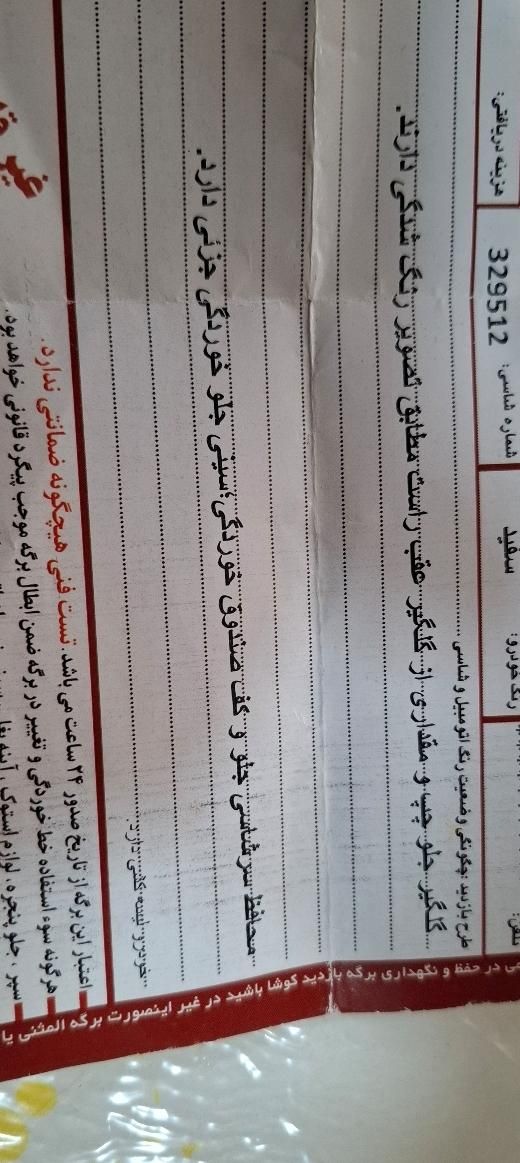 هزینه دریافتی:
شماره شاسی: 329512
رنگ خودرو: سفید
تلفن:
طرح بازدید :چگونگی وضعیت رنگ اتومبیل و شاسی
گلگیر جلو چپ و مقداری از گلگیر عقب راست مطابق تصویر رنگ شدگی دارند.
محافظ سرشاسی جلو و کف صندوق خوردگی؛سینی جلو خوردگی جزئی دارد.
خودرو لیسه کشی دارد.
غیر
اعتبار این برگه از تاریخ صدور ۲۴ ساعت می باشد. تست فنی هیچگونه ضمانتی ندارد.
هرگونه سوء استفاده خط خوردگی و تغییر در برگه ضمن ابطال برگه موجب پیگرد قانونی خواهد بود.
سپر ، جلو پنجره ، لوازم استوک ، آینه بغل
در حفظ و نگهداری برگه بازدید کوشا باشید در غیر اینصورت برگه المثنی